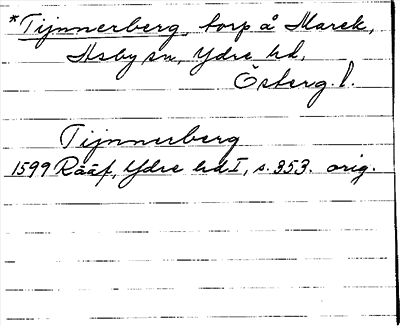 *Tijnnerberg, torp å Marek,
Asby sn, Ydre hd,
Österg. l.
Tijnnerberg
1599 Rääf, Ydre hd I, s. 353. orig.